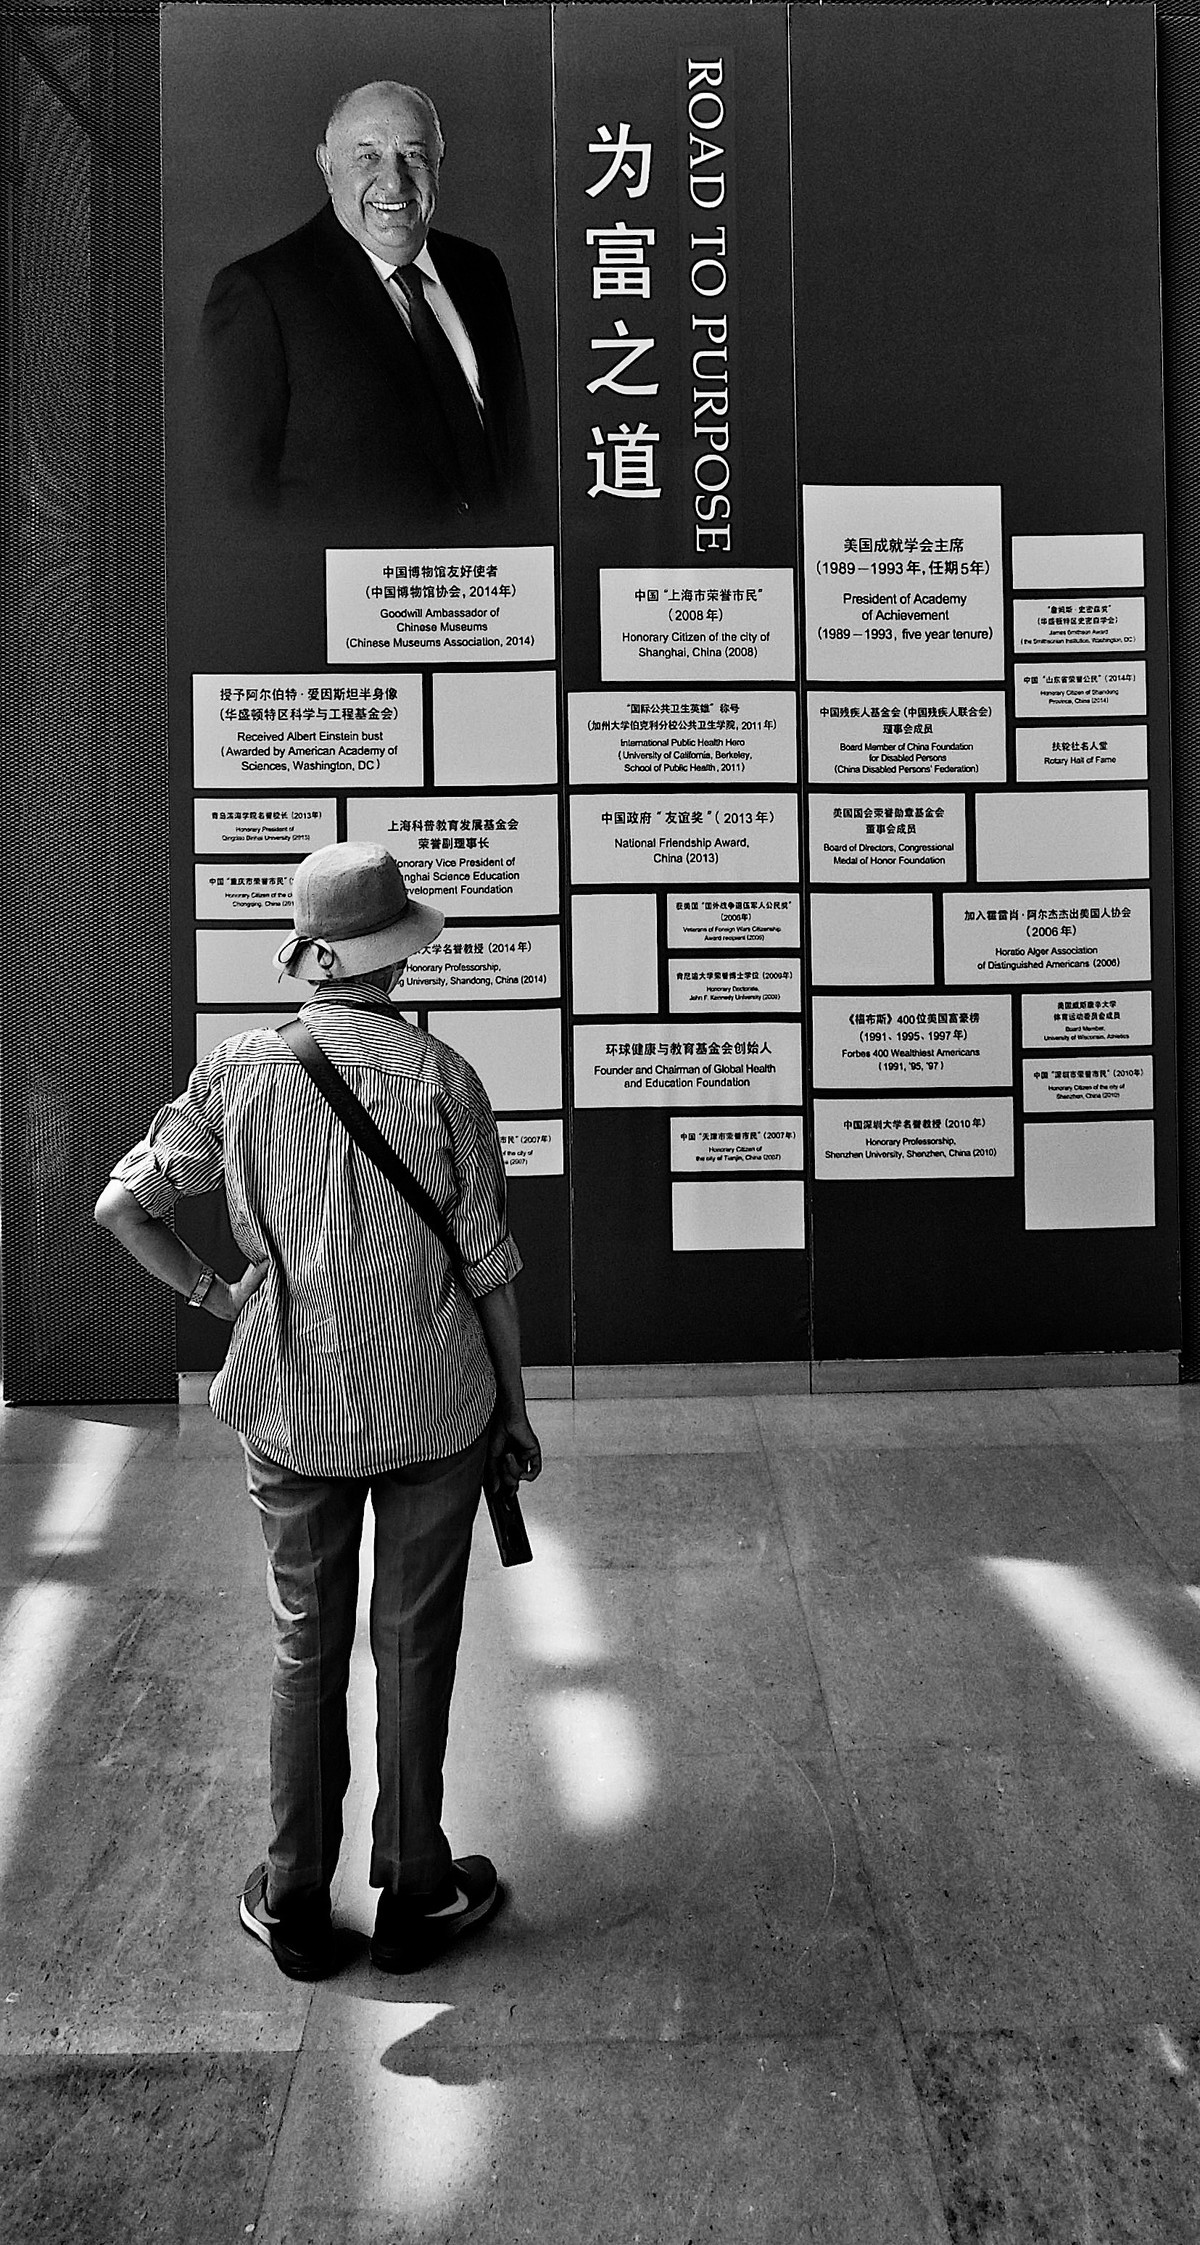 为富之道
ROAD TO PURPOSE
中国博物馆友好使者
（中国博物馆协会，2014年）
Goodwill Ambassador of
Chinese Museums
(Chinese Museums Association, 2014)
授予阿尔伯特·爱因斯坦半身像
（华盛顿特区科学与工程基金会）
Received Albert Einstein bust
(Awarded by American Academy of
Sciences, Washington, DC)
青岛滨海学院名誉校长（2013年）
Honorary President of
Qingdao Binhai University (2013)
上海科普教育发展基金会
荣誉副理事长
onorary Vice President of
nghai Science Education
evelopment Foundation
中国“重庆市荣誉市民”
Honorary Citizen of the
Chongqing, China
大学名誉教授（2014年）
Honorary Professorship,
g University, Shandong, China (2014)
市民”（2007年）
of the city of
(2007)
中国“上海市荣誉市民”
（2008年）
Honorary Citizen of the city of
Shanghai, China (2008)
“国际公共卫生英雄”称号
（加州大学伯克利分校公共卫生学院，2011年）
International Public Health Hero
(University of California, Berkeley,
School of Public Health, 2011)
中国政府“友谊奖”（2013年）
National Friendship Award,
China (2013)
获美国“国外战争退伍军人公民奖”
（2006年）
Veterans of Foreign Wars Citizenship
Award recipient (2006)
肯尼迪大学荣誉博士学位（2009年）
Honorary Doctorate,
John F. Kennedy University (2009)
环球健康与教育基金会创始人
Founder and Chairman of Global Health
and Education Foundation
中国“天津市荣誉市民”（2007年）
Honorary Citizen of
the city of Tianjin, China (2007)
美国成就学会主席
（1989－1993年，任期5年）
President of Academy
of Achievement
(1989－1993, five year tenure)
“詹姆斯·史密森奖”
（华盛顿特区史密森学会）
James Smithson Award
(the Smithsonian Institution, Washington, DC)
中国“山东省荣誉公民”（2014年）
Honorary Citizen of Shandong
Province, China (2014)
中国残疾人基金会（中国残疾人联合会）
理事会成员
Board Member of China Foundation
for Disabled Persons
(China Disabled Persons' Federation)
扶轮社名人堂
Rotary Hall of Fame
美国国会荣誉勋章基金会
董事会成员
Board of Directors, Congressional
Medal of Honor Foundation
加入霍雷肖·阿尔杰杰出美国人协会
（2006年）
Horatio Alger Association
of Distinguished Americans (2006)
《福布斯》400位美国富豪榜
（1991、1995、1997年）
Forbes 400 Wealthiest Americans
(1991, '95, '97)
美国威斯康辛大学
体育运动委员会成员
Board Member,
University of Wisconsin, Athletics
中国“深圳市荣誉市民”（2010年）
Honorary Citizen of the city of
Shenzhen, China (2010)
中国深圳大学名誉教授（2010年）
Honorary Professorship,
Shenzhen University, Shenzhen, China (2010)